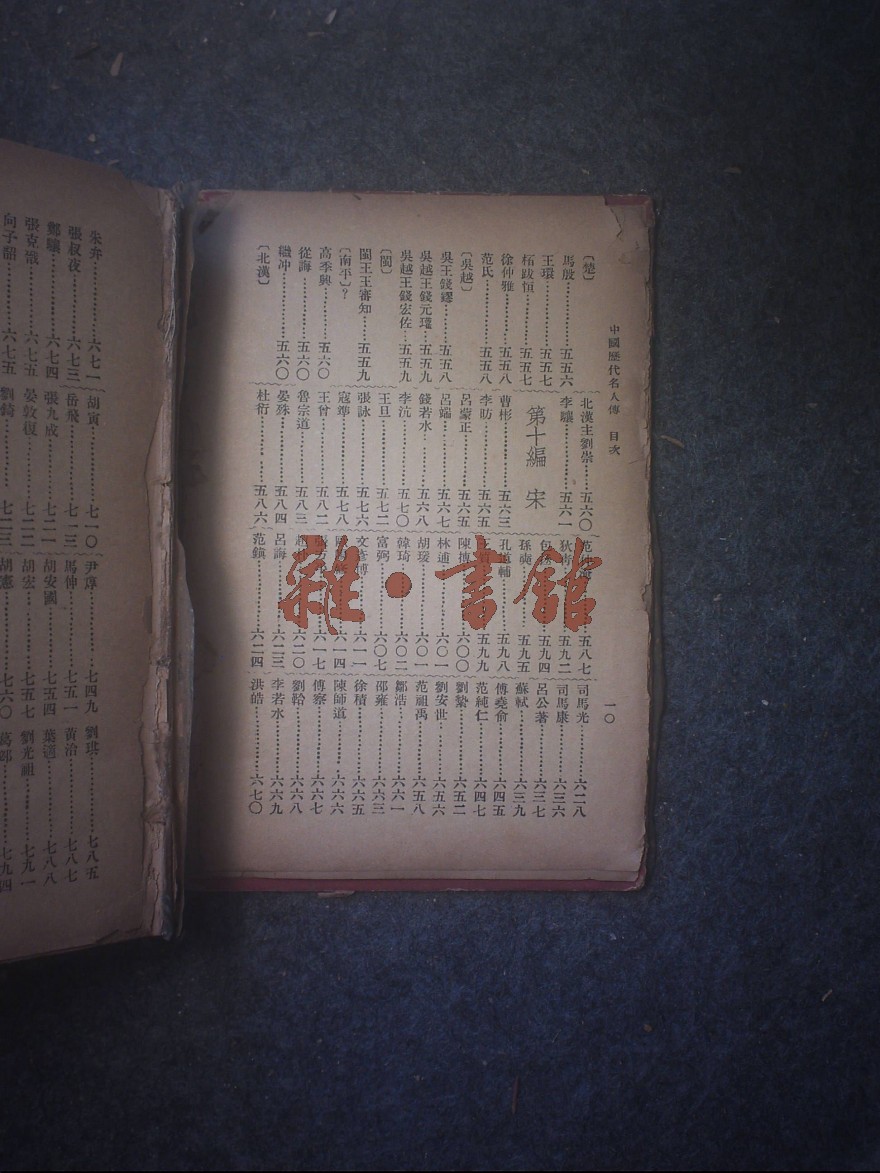 中國歷代名人傳　目次
一〇
〔楚〕
馬殷……五五六
王環……五五七
柘跋恒……五五七
徐仲雅……五五八
范氏……五五八
〔吳越〕
吳王錢鏐……五五八
吳越王錢元瓘……五五九
吳越王錢宏佐……五五九
〔閩〕
閩王王審知……五五九
〔南平〕?
高季興……五六〇
從誨……五六〇
繼冲……五六〇
〔北漢〕
北漢主劉崇……五六〇
李驤……五六一
第十編　宋
曹彬……五六三
李昉……五六五
呂蒙正……五六五
呂端……五六七
錢若水……五六八
李沆……五七〇
王旦……五七二
張詠……五七六
寇準……五七八
王曾……五八二
魯宗道……五八三
晏殊……五八四
杜衍……五八六
范仲淹……五八七
狄青……五九二
包拯……五九四
孫奭……五九五
孔道輔……五九八
五九九
陳摶……六〇〇
林逋……六〇一
胡瑗……六〇一
韓琦……六〇二
富弼……六〇七
文彥博……六一一
歐陽修……六一四
六一七
六二〇
呂誨……六二三
范鎮……六二四
司馬光……六二八
司馬康……六三六
呂公著……六三七
蘇軾……六三九
傅堯俞……六四五
范純仁……六四七
劉摯……六五二
劉安世……六五六
范祖禹……六五八
鄒浩……六六一
邵雍……六六三
徐積……六六五
陳師道……六六六
傅察……六六七
劉韐……六六八
李若水……六六九
洪皓……六七〇
朱弁……六七一
張叔夜……六七三
鄭驤……六七四
張克戩……六七五
向子韶……六七五
胡寅……七一〇
岳飛……七一三
張九成……七二一
晏敦復……七二二
劉錡……七二三
尹焞……七四九
馬伸……七五一
胡安國……七五四
胡宏……七五七
胡憲……七六〇
劉珙……七八五
黃治……七八七
葉適……七八八
劉光祖……七九一
葛邲……七九四
雜·書館